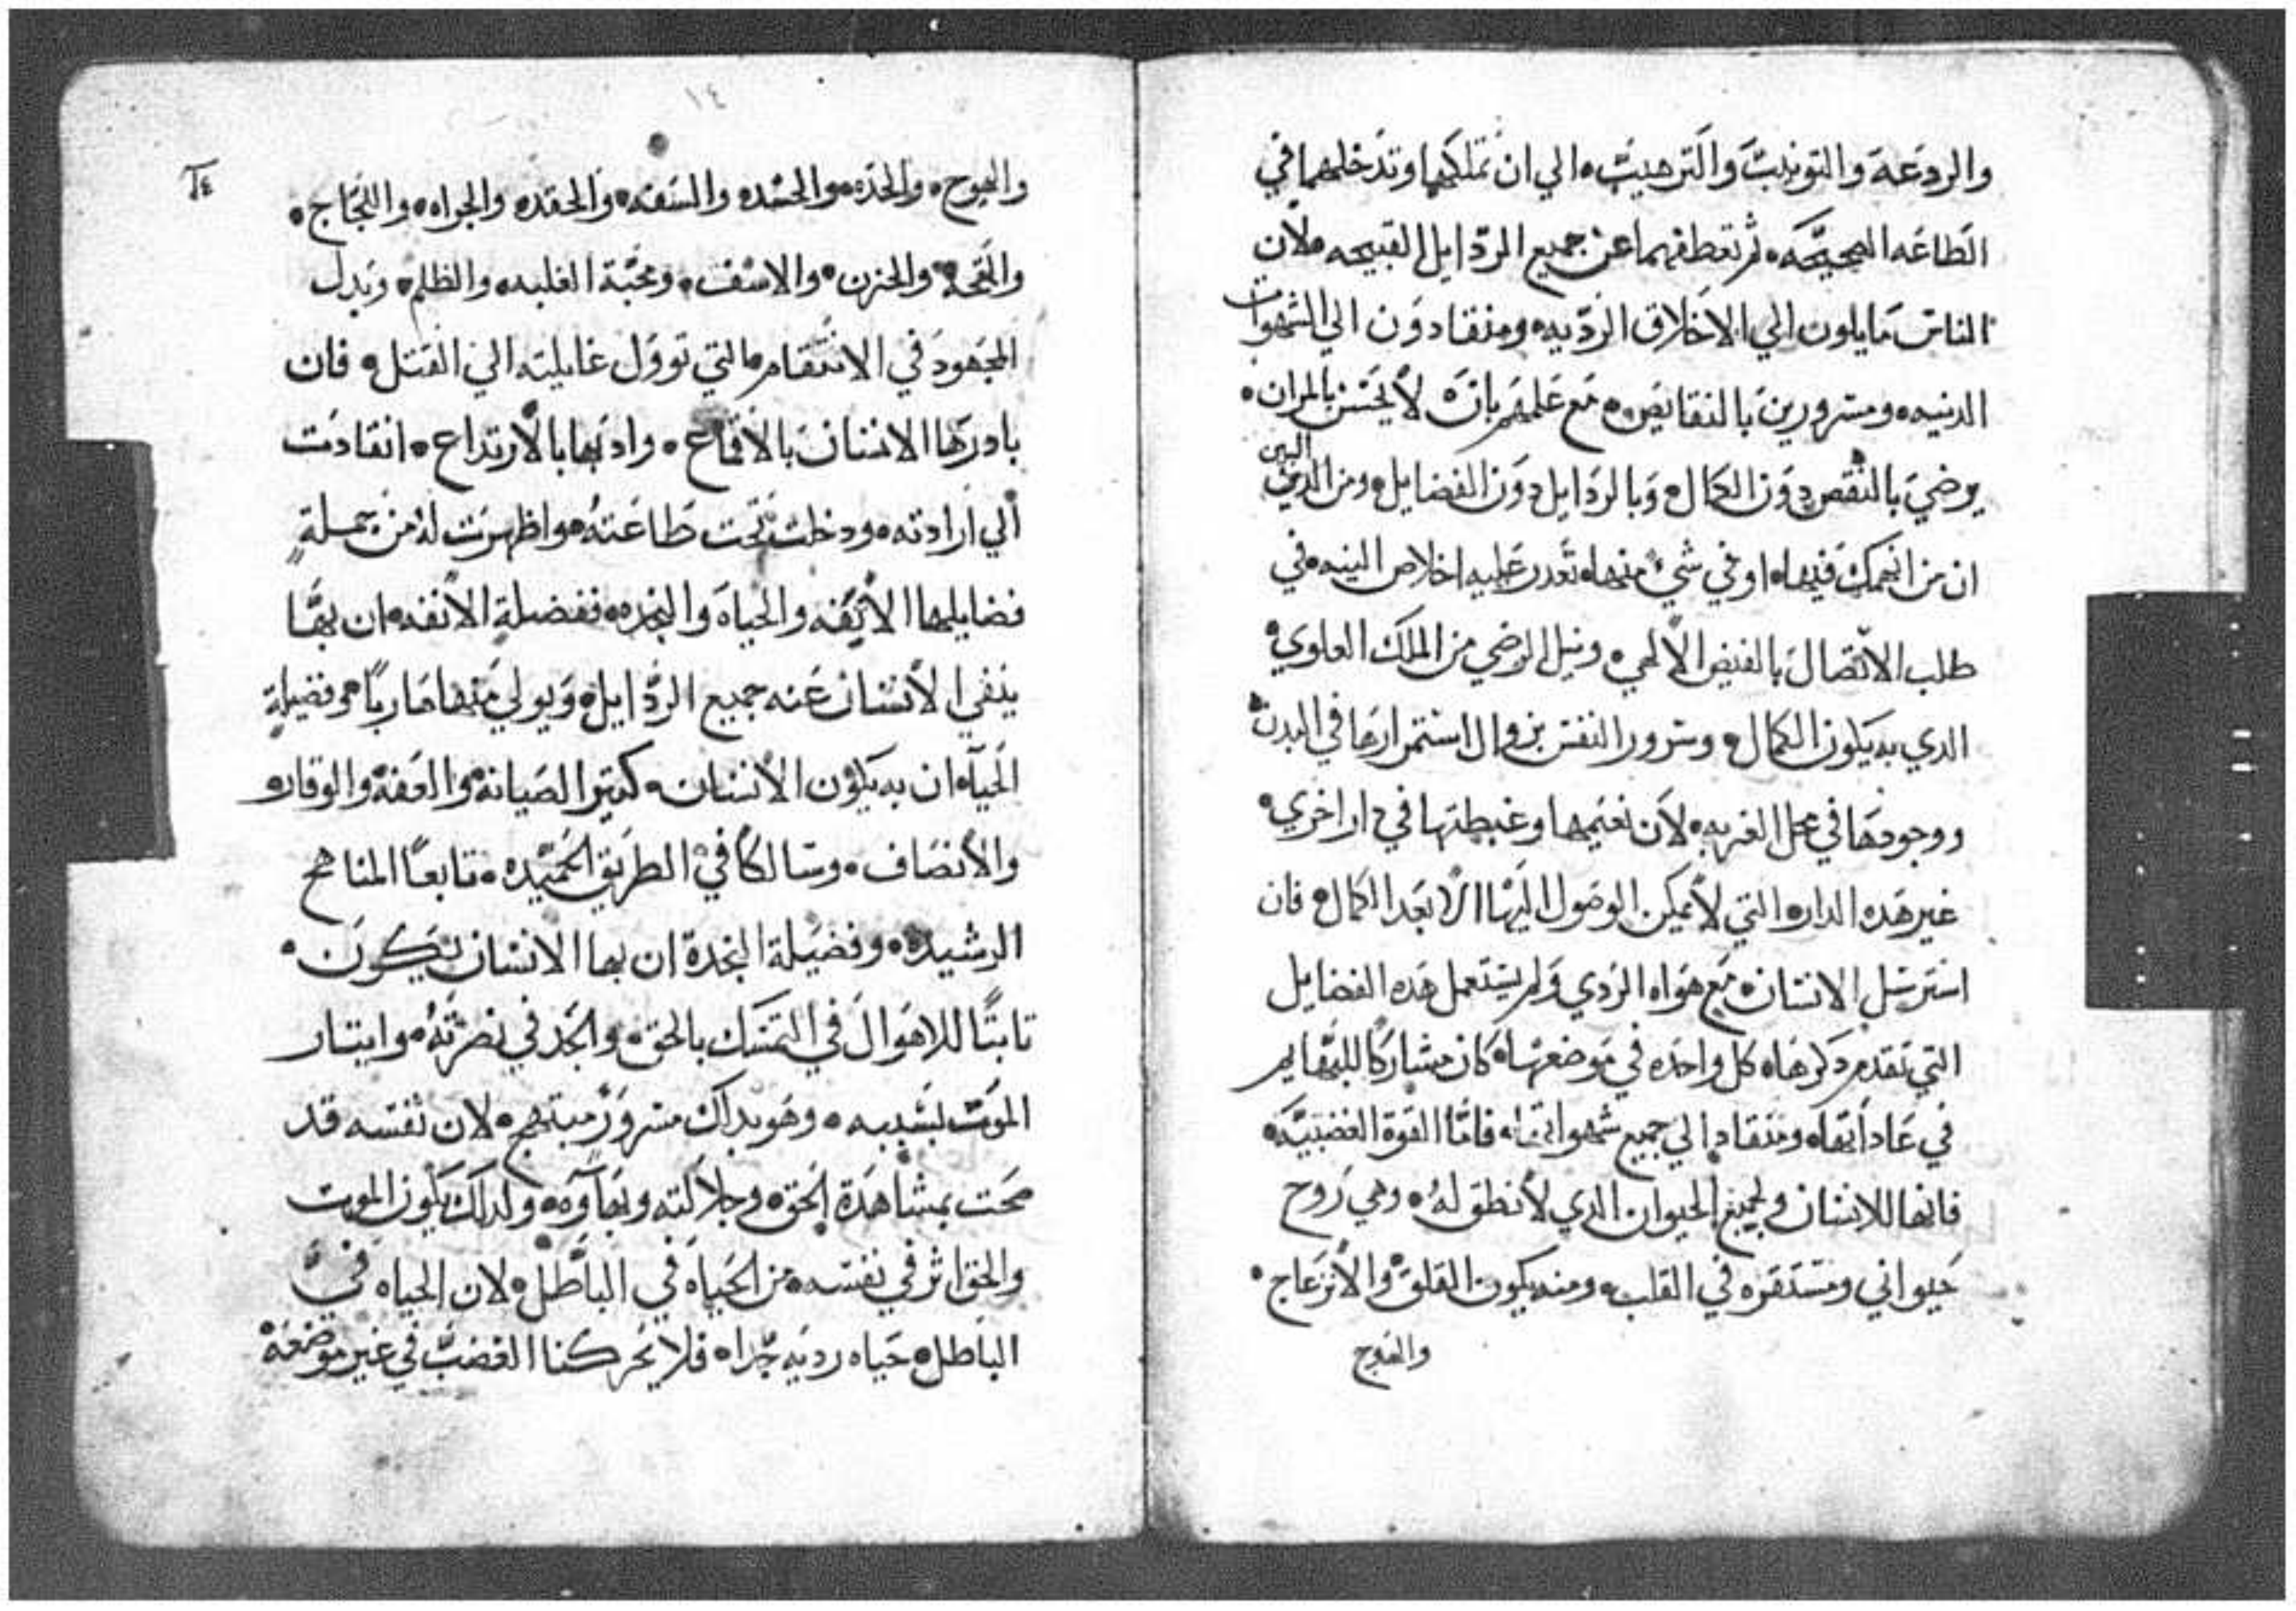 والردعة والتوبيت والترهيب الي ان تملكهما وتدخلهما في
الطاعه الصحيحه ثم تعطفهما عن جميع الردايل القبيحه لان
الناس مايلون الي الاخلاق الرديه ومنقادون الي الشهوات
الدنيه ومسرورين بالنقايص مع علمهم بانه لا يحسن بالمران
يرضي بالنقص دون الكمال وبالردايل دون الفضايل ومن البين
ان من انهمك فيها او في شيء منها تعدر عليه اخلاص النيه في
طلب الاتصال بالفيض الالهي ونيل الرضي من الملك العلوي
الدي به يكون الكمال وسرور النفس بزوال استمرارها في البدن
ووجودها في محل الغربه لان نعيمها وغبطتها في دار اخري
غير هده الدار التي لا يمكن الوصول اليها الا بعد الكمال فان
استرسل الانسان مع هواه الردي ولم يستعمل هده الفضايل
التي تقدم دكرها كل واحده في موضعها كان مشاركا للبهايم
في عاداتها ومنقاد الي جميع شهواتها فاما القوة الغضبيه
فانها للانسان ولجميع الحيوان الدي لا نطق له وهي روح
حيواني ومستقره في القلب ومنه يكون القلق والانزعاج
والهوج
١٤
١٤
والهوج والحده والحسد والسفه والحقد والجراه واللجاج
والقحه والحزن والاسف ومحبة الغلبه والظلم وبدل
المجهود في الانتقام التي توول غايلته الي القتل فان
بادرها الانسان بالاقماع وادبها بالارتداع انقادت
الي ارادته ودخلت تحت طاعته واظهرت له من جملة
فضايلها الانفه والحياه والنجده ففضلة الانفه ان بها
ينفي الانسان عنه جميع الردايل ويولي منها هاربا وفضيلة
الحيآه ان به يكون الانسان كتير الصيانه والعفه والوقار
والانصاف وسالكا في الطريق الحميده تابعا المناهج
الرشيده وفضيلة النجدة ان بها الانسان يكون
تابتا للاهوال في التمسك بالحق والجد في نصرته وايتار
الموت بسببه وهو بداك مسرور مبتهج لان نفسه قد
صحت بمشاهدة الحق وجلالته وبهآوه ولدلك يكون الموت
والحق اثر في نفسه من الحياه في الباطل لان الحياه في
الباطل حياه رديه جدا فلا يحركنا الغضب في غير موضعه